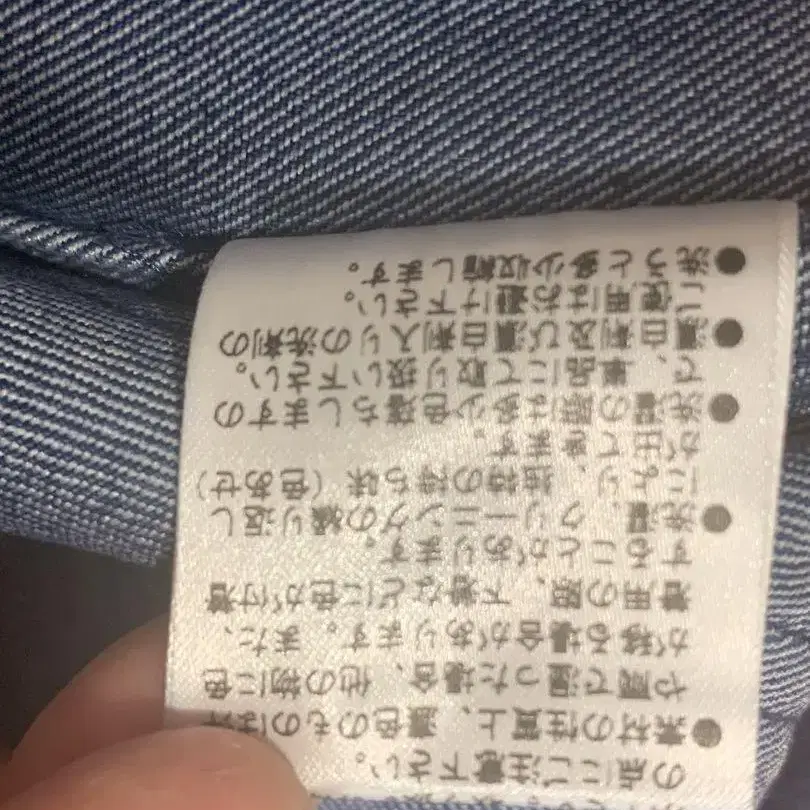 の点にご注意下さい。
●素材の性質上、濃色のものは汗
や雨で湿った場合、他の物に色
が移る場合があります。また、
着用の際、下着などに色が付着
することがあります。
●洗濯、クリーニングの繰り返し
により、独特の持ち味（色あせ）
が出てきます。
●洗濯の際は多少色落ちしますの
で、単品にて取り扱い下さい。
●漂白剤及び漂白剤入りの洗剤の
ご使用はお避け下さい。
●洗うと多少収縮します。